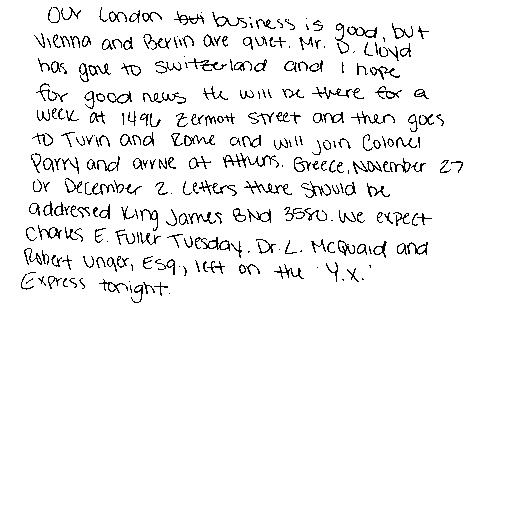 Our London business is good, but
Vienna and Berlin are quiet. Mr. D. Lloyd
has gone to Switzerland and I hope
for good news He will be there for a
week at 1496 Zermott Street and then goes
to Turin and Rome and will join Colonel
Parry and arrive at Athens. Greece, November 27
or December 2. Letters there should be
addressed King James Blvd 3580. We expect
Charles E. Fuller Tuesday. Dr. L. McQuaid and
Robert Unger, Esq., left on the 'Y.X.'
Express tonight.